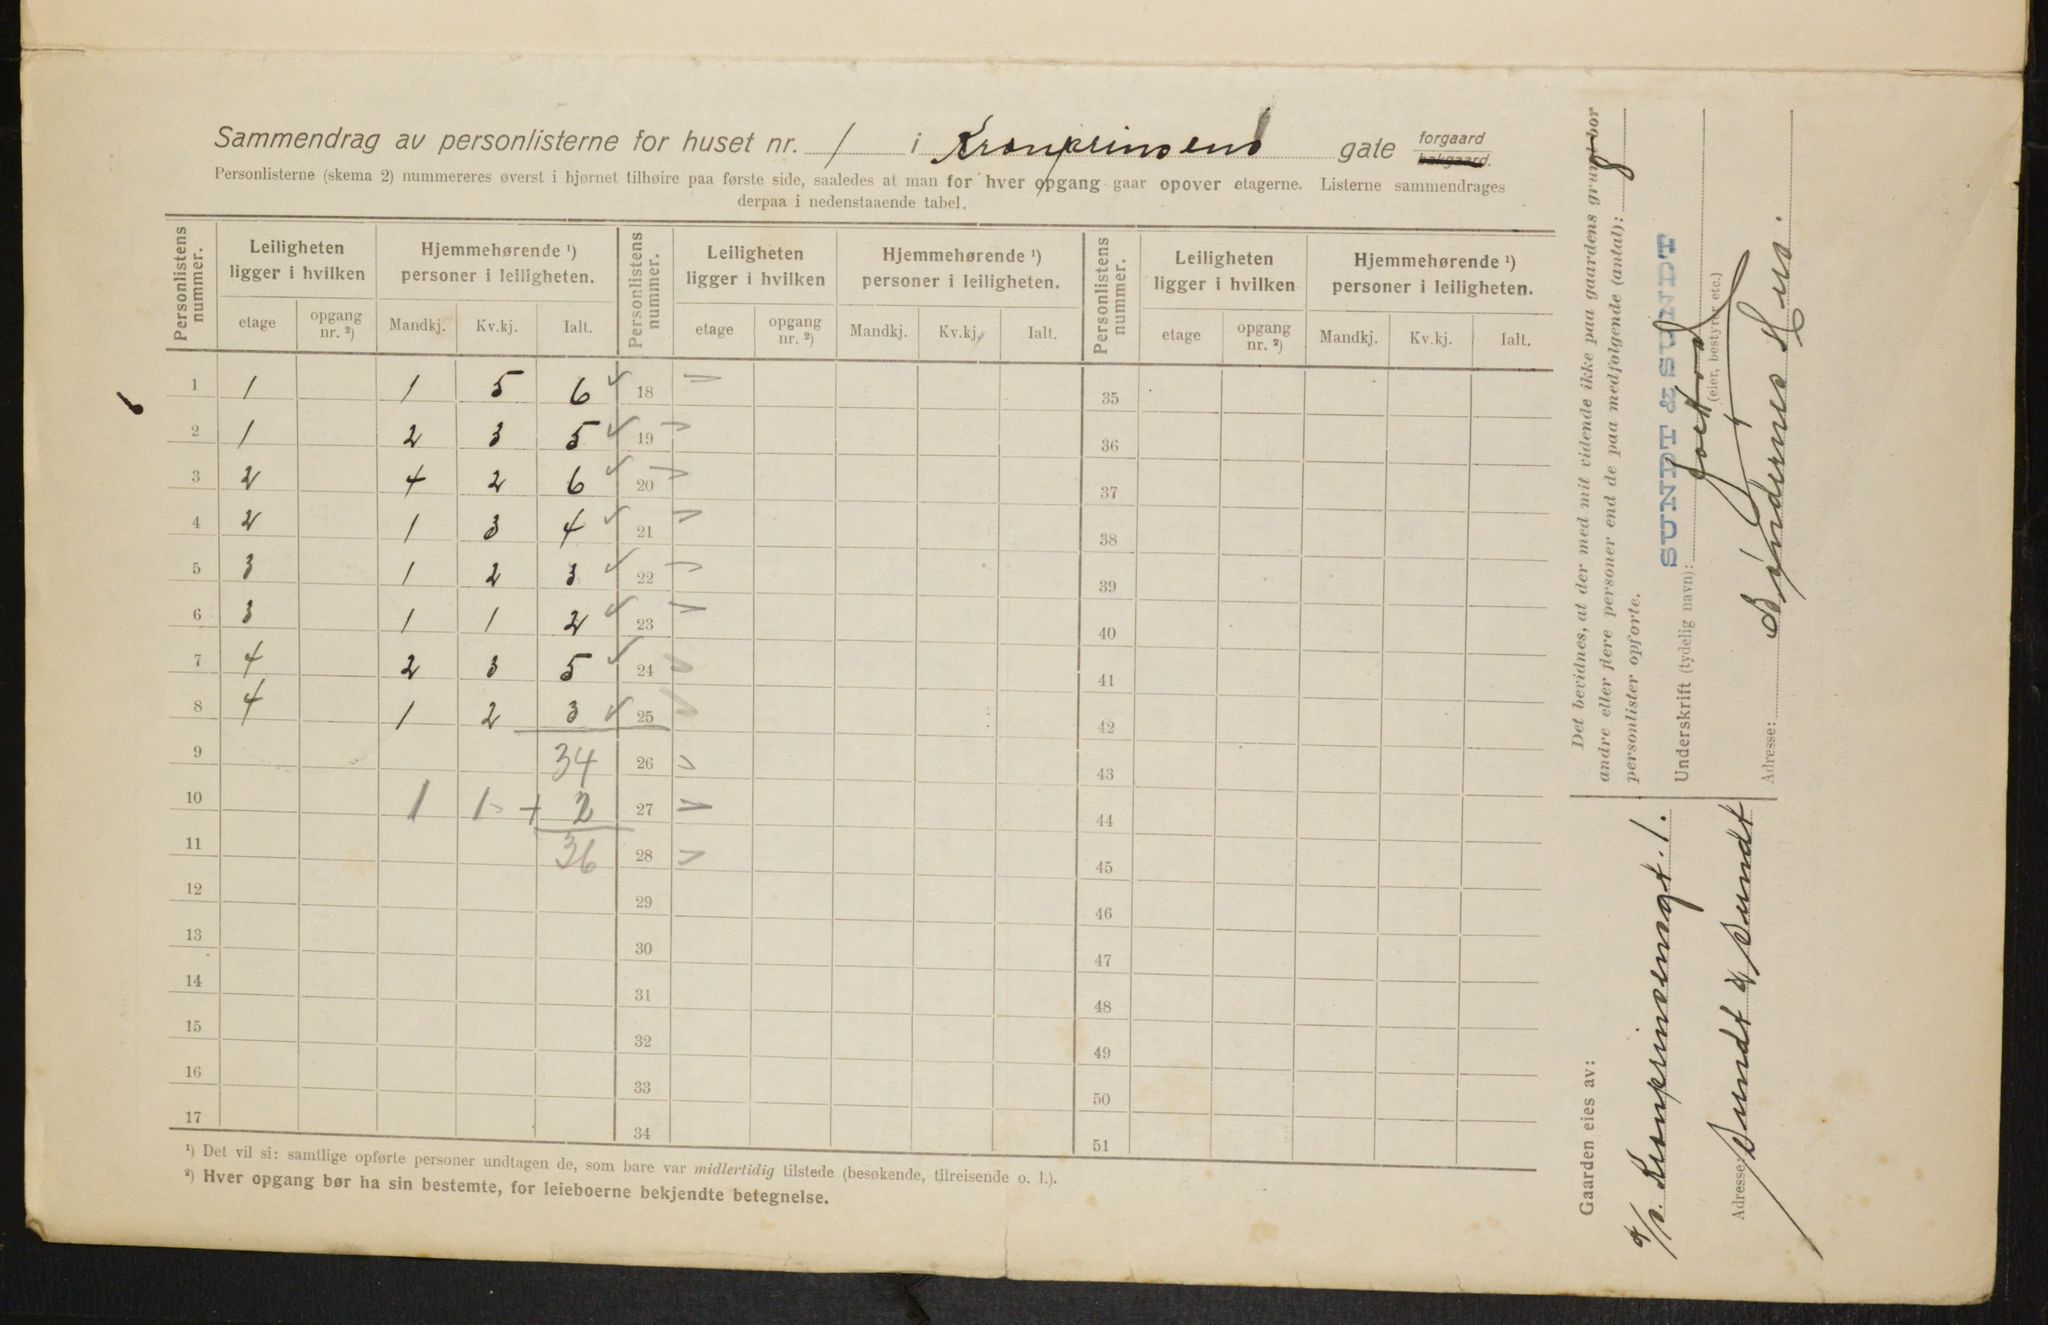 Sammendrag av personlisterne for huset nr. 1 i Kronprinsens gate forgaard bakgaard.
Personlisterne (skema 2) nummereres øverst i hjørnet tilhøire paa første side, saaledes at man for hver opgang gaar opover etagerne. Listerne sammendrages
derpaa i nedenstaaende tabel.
Personlistens nummer. Leiligheten ligger i hvilken Hjemmehørende ¹) personer i leiligheten. Personlistens nummer. Leiligheten ligger i hvilken Hjemmehørende ¹) personer i leiligheten. Personlistens nummer. Leiligheten ligger i hvilken Hjemmehørende ¹) personer i leiligheten.
etage opgang nr. ²) Mandkj. Kv.kj. Ialt. etage opgang nr. ²) Mandkj. Kv.kj. Ialt. etage opgang nr. ²) Mandkj. Kv.kj. Ialt.
1 1 1 5 6 ✓ 18 35
2 1 2 3 5 ✓ 19 36
3 2 4 2 6 ✓ 20 37
4 2 1 3 4 ✓ 21 38
5 3 1 2 3 ✓ 22 39
6 3 1 1 2 ✓ 23 40
7 4 2 3 5 ✓ 24 41
8 4 1 2 3 ✓ 25 42
9 34 26 43
10 1 1 + 2 27 44
11 36 28 45
12 29 46
13 30 47
14 31 48
15 32 49
16 33 50
17 34 51
¹) Det vil si: samtlige opførte personer undtagen de, som bare var midlertidig tilstede (besøkende, tilreisende o. l.).
²) Hver opgang bør ha sin bestemte, for leieboerne bekjendte betegnelse.
Det bevidnes, at der med mit vidende ikke paa gaardens grund bor
andre eller flere personer end de paa medfølgende (antal): 8
personlister opførte.
SUNDT & SUNDT
Underskrift (tydelig navn):
(eier, bestyrer etc.)
Adresse: Hus.
Gaarden eies av:
A/s. Kronprinsensgt. 1.
Adresse: Sundt & Sundt